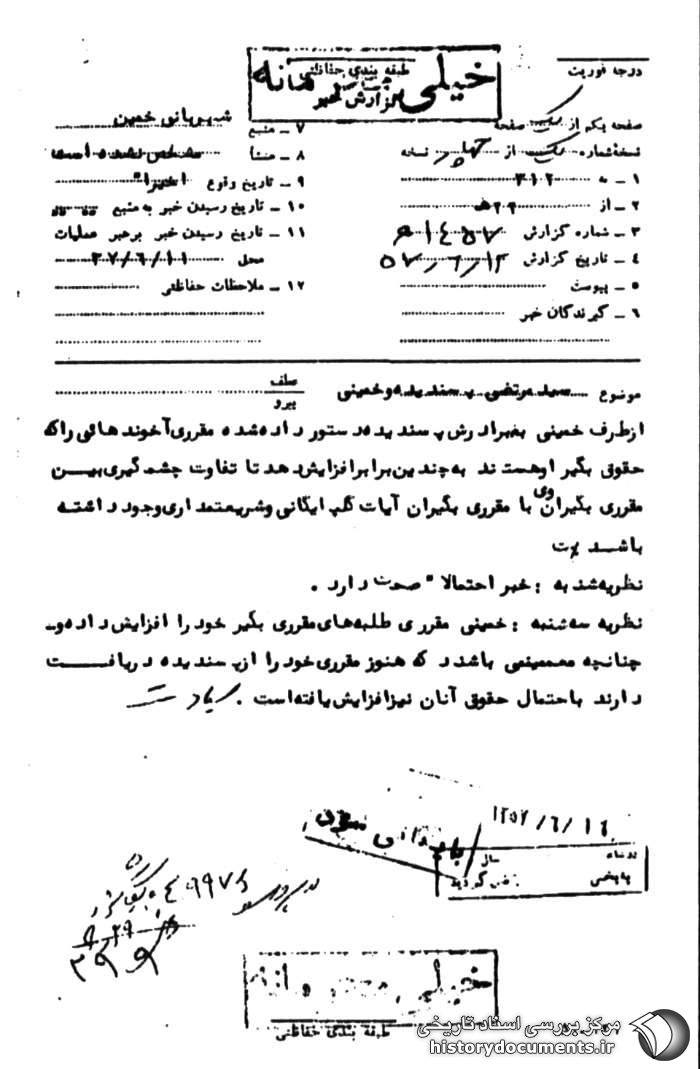 طبقه بندی حفاظتی
خیلی محرمانه
گزارش خبر
درجه فوریت
صفحه یکم از یک صفحه
نسخه شماره یک از چهار نسخه
۱ ـ به ۳۱۲
۲ ـ از ۲۲ه‍
۳ ـ شماره گزارش
۴ ـ تاریخ گزارش ۵۷/۶/۱۲
۵ ـ پیوست
۶ ـ گیرندگان خبر
۷ ـ منبع شهربانی خمین
۸ ـ منشأ مشخص نشده است
۹ ـ تاریخ وقوع اخیرا"
۱۰ ـ تاریخ رسیدن خبر به منبع
۱۱ ـ تاریخ رسیدن خبر برهبر عملیات
محل ۳۷/۶/۱۱
۱۲ ـ ملاحظات حفاظتی
موضوع سیدمرتضی پسندیده و خمینی
عطف
پیرو
ازطرف خمینی به برادرش پسندیده دستور داده شده مقرری آخوندهائی راکه
حقوق بگیر او هستند به چندین برابر افزایش دهد تا تفاوت چشم گیری بیـن
مقرری بگیران وی با مقرری بگیران آیات گلپایگانی و شریعتمداری وجود داشته
باشد
نظریه شنبه : خبر احتمالا" صحت دارد .
نظریه سه شنبه : خمینی مقرری طلبه های مقرری بگیر خود را افزایش داده و ـ
چنانچه معممینی باشند که هنوز مقرری خود را از پسندیده دریافت
دارند باحتمال حقوق آنان نیز افزایش یافته است .
۱۳۵۷/۶/۱۶
بایگانی
سال
طبقه بندی حفاظتی
مرکز بررسی اسناد تاریخی
historydocuments.ir